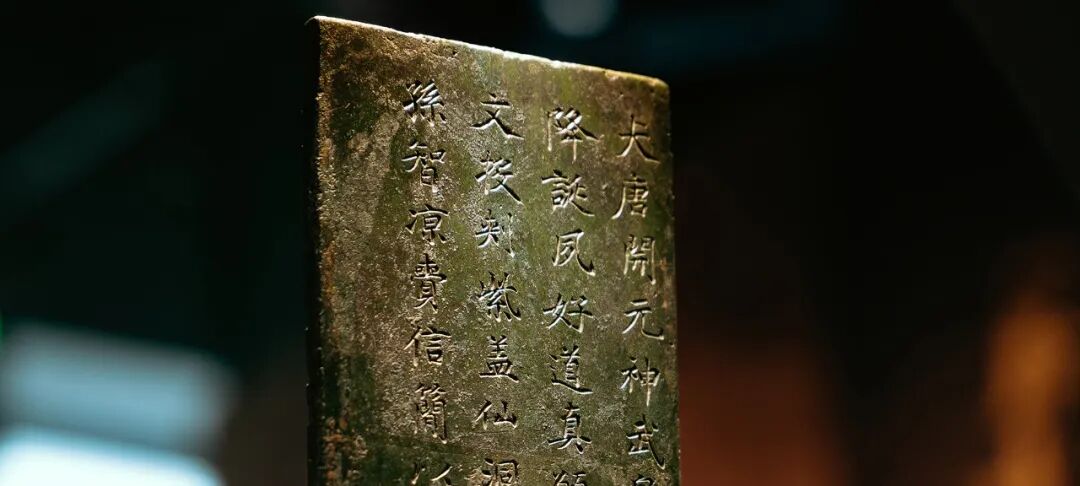 大唐開元神武
降誕夙好道真願
文投刾紫盖仙洞
孫智凉賷信簡以